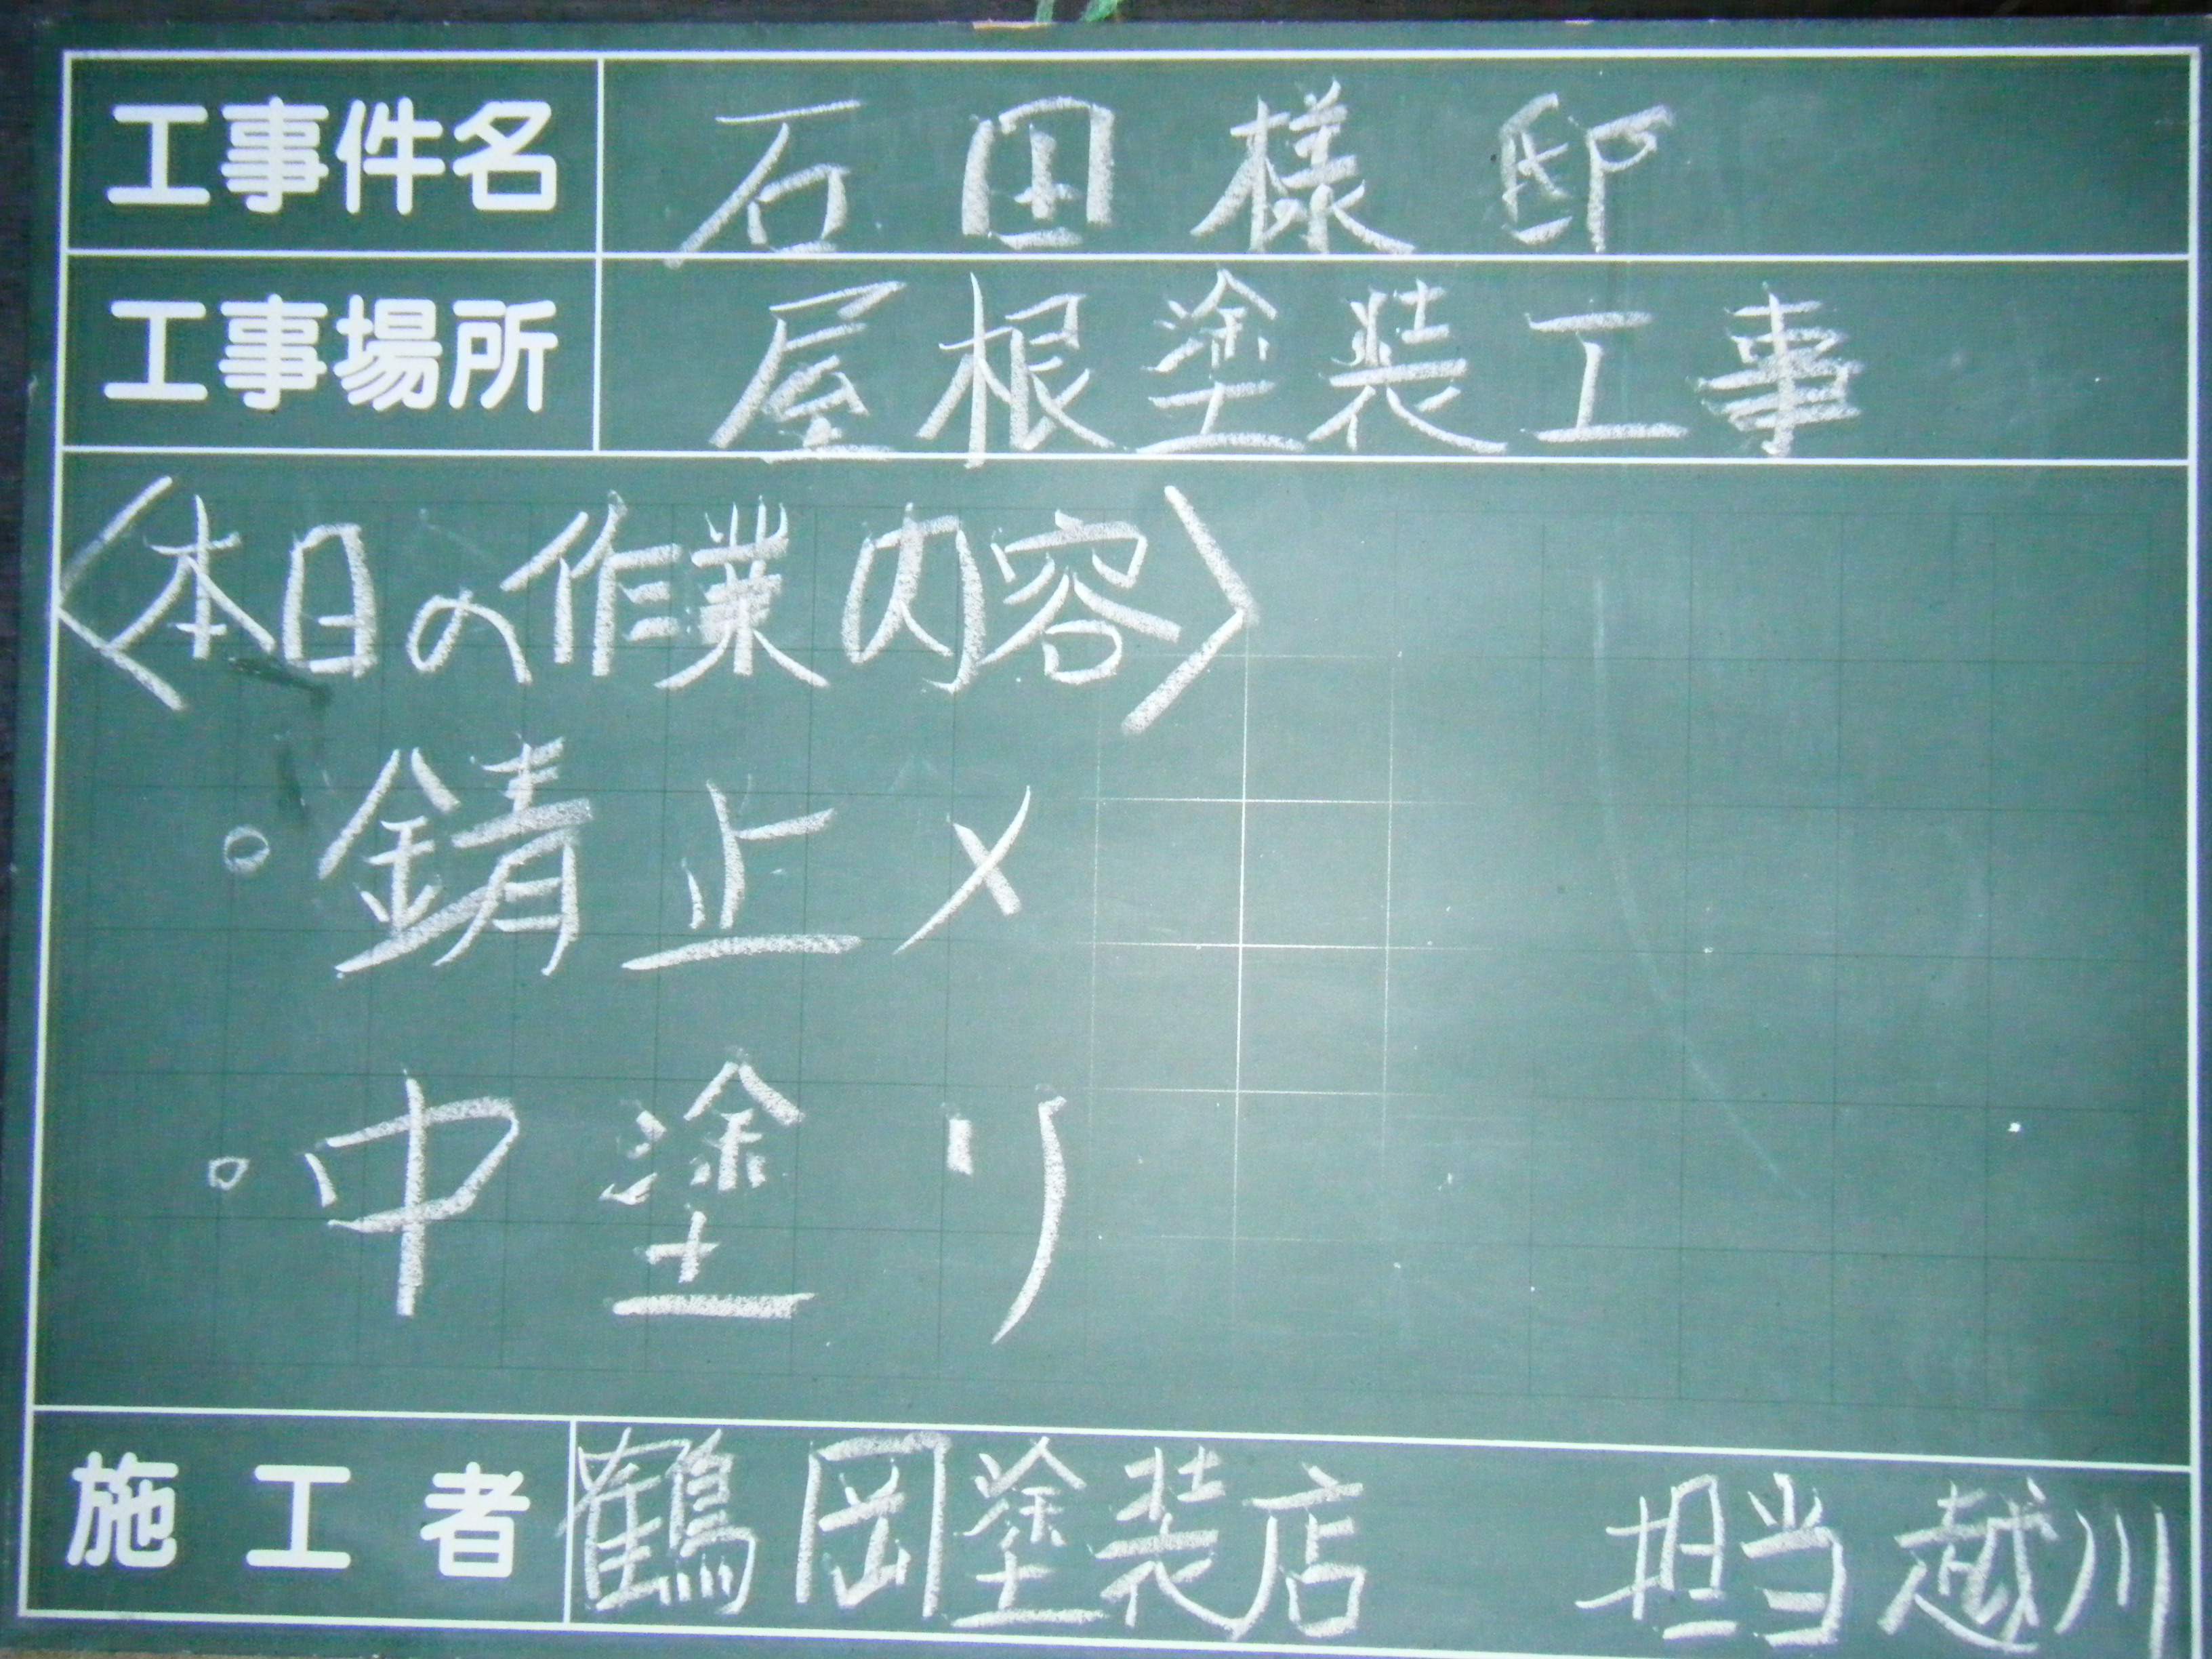 工事件名 石田様邸
工事場所 屋根塗装工事
〈本日の作業内容〉
・錆止メ
・中塗り
施工者 鶴岡塗装店 担当越川